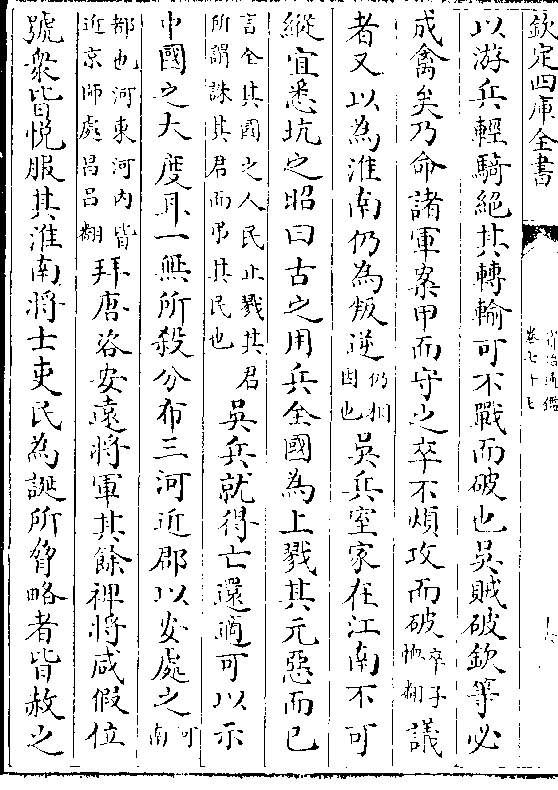 欽定四庫全書
資治通鑑
卷七十七
以游兵輕騎絕其轉輸可不戰而破也吳賊破欽等必
成禽矣乃命諸軍案甲而守之卒不煩攻而破卒子恤翻議
者又以為淮南仍為叛逆仍相因也吳兵室家在江南不可
縱宜悉坑之昭曰古之用兵全國為上戮其元惡而已
言全其國之人民止戮其君所謂誅其君而弔其民也吳兵就得亡還適可以示
中國之大度耳一無所殺分布三河近郡以安處之河南
都也河東河內皆近京師處昌呂翻拜唐咨安遠將軍其餘裨將咸假位
號衆皆悅服其淮南將士吏民為誕所脅略者皆赦之